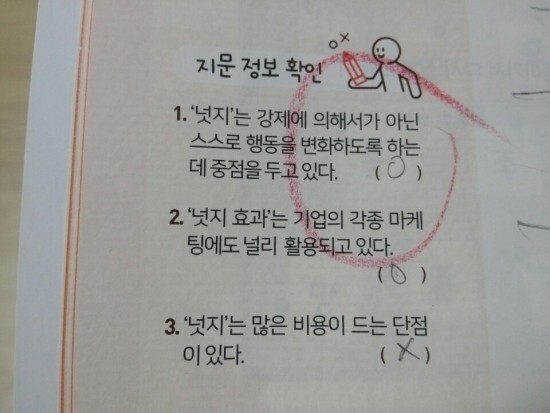 ○×
지문 정보 확인
1. '넛지'는 강제에 의해서가 아닌
스스로 행동을 변화하도록 하는
데 중점을 두고 있다. ( O )
2. '넛지 효과'는 기업의 각종 마케
팅에도 널리 활용되고 있다.
( O )
3. '넛지'는 많은 비용이 드는 단점
이 있다. ( X )